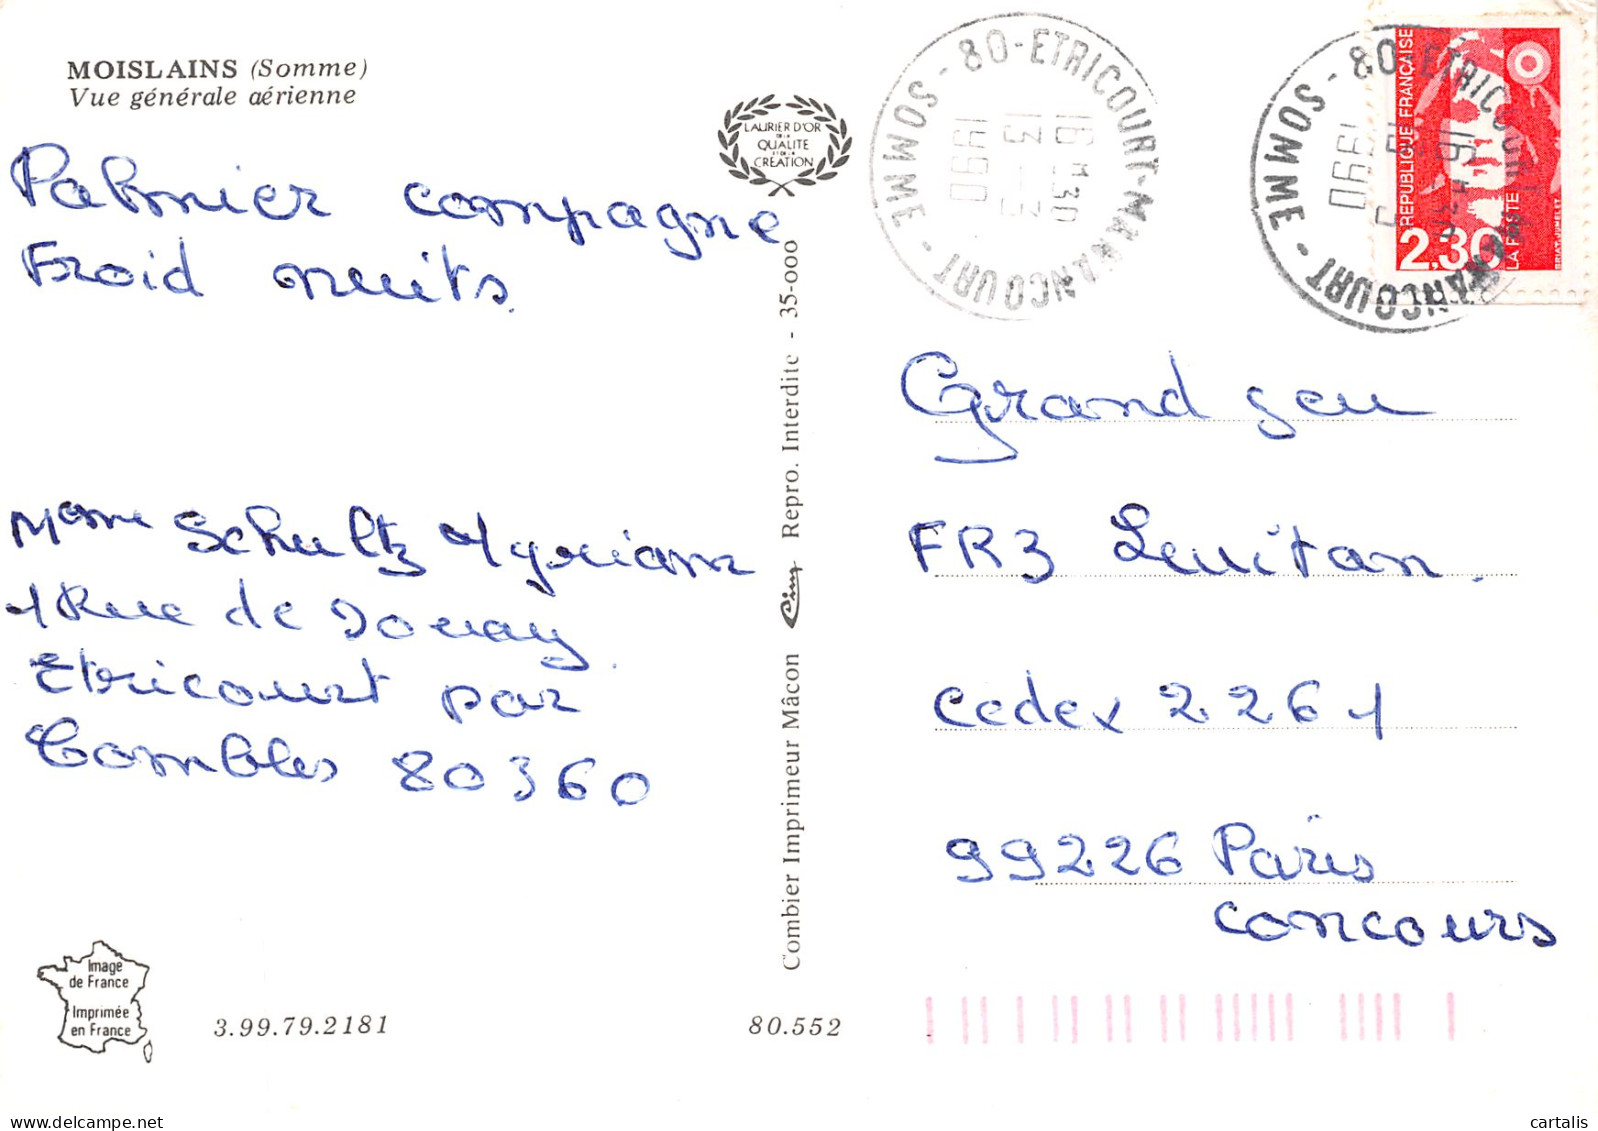 MOISLAINS (Somme)
Vue générale aérienne
Palmier compagne
Froid nuits.
LAURIER D'OR
DE LA
QUALITE
ET DE LA
CREATION
80-ETRICOURT-MANANCOURT - SOMME -
16 H 30
13 - 3
1990
80-ETRICOURT-MANANCOURT - SOMME -
16 H 30
13 - 3
1990
REPUBLIQUE FRANÇAISE
2,30
LA POSTE
BRIAT-JUMELET
Mme Schultz Myriam
1 Rue de Douay
Etricourt par
Combles 80360
Combier Imprimeur Mâcon Cim Repro. Interdite - 35-000
Grand jeu
FR3 Levitan.
Cedex 2261
99226 Paris
concours
Image
de France
Imprimée
en France
3.99.79.2181
80.552
cartalis